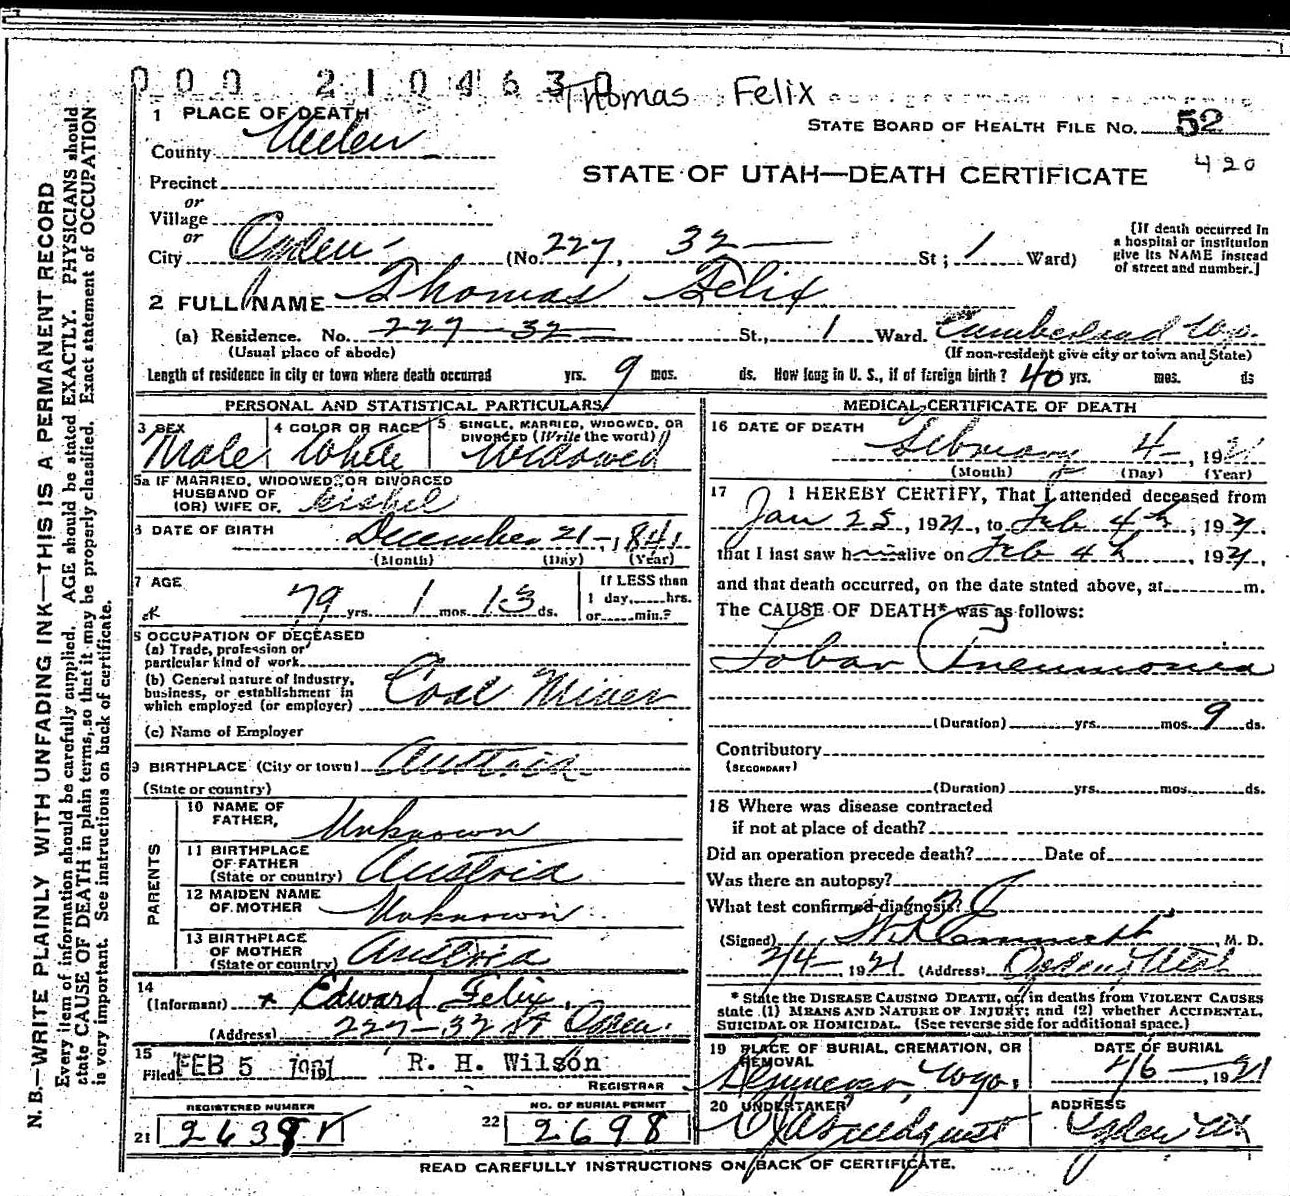 000 210463 0
Thomas Felix
1 PLACE OF DEATH
County
STATE BOARD OF HEALTH FILE No. 52
420
STATE OF UTAH—DEATH CERTIFICATE
Precinct
or
Village
or
City Ogden (No. 227, 32 St; 1 Ward)
[If death occurred in
a hospital or institution
give its NAME instead
of street and number.]
2 FULL NAME Thomas Felix
(a) Residence. No. 227 - 32 St., 1 Ward. Cumberland Wyo.
(Usual place of abode) (If non-resident give city or town and State)
Length of residence in city or town where death occurred yrs. 9 mos. ds. How long in U. S., if of foreign birth? 40 yrs. mos. ds
PERSONAL AND STATISTICAL PARTICULARS
3 SEX
Male
4 COLOR OR RACE
White
5 SINGLE, MARRIED, WIDOWED, OR
DIVORCED (Write the word)
Widowed
5a IF MARRIED, WIDOWED, OR DIVORCED
HUSBAND OF
(OR) WIFE OF
6 DATE OF BIRTH
December 21-, 1841
(Month) (Day) (Year)
7 AGE
79 yrs. 1 mos. 13 ds.
If LESS than
1 day, hrs.
or min.?
8 OCCUPATION OF DECEASED
(a) Trade, profession or
particular kind of work
(b) General nature of Industry,
business, or establishment in
which employed (or employer) Coal Miner
(c) Name of Employer
9 BIRTHPLACE (City or town) Austria
(State or country)
PARENTS
10 NAME OF
FATHER, Unknown
11 BIRTHPLACE
OF FATHER
(State or country) Austria
12 MAIDEN NAME
OF MOTHER Unknown
13 BIRTHPLACE
OF MOTHER
(State or country) Austria
14
(Informant) Edward Felix
(Address) 227-32 St Ogden
15
Filed FEB 5 1921 R. H. Wilson
REGISTRAR
REGISTERED NUMBER
21
NO. OF BURIAL PERMIT
22 2698
MEDICAL CERTIFICATE OF DEATH
16 DATE OF DEATH
February 4-, 1921
(Month) (Day) (Year)
17 I HEREBY CERTIFY, That I attended deceased from
Jan 25, 1921, to Feb 4th, 1921,
that I last saw him alive on Feb 4th, 1921,
and that death occurred, on the date stated above, at m.
The CAUSE OF DEATH* was as follows:
Lobar Pneumonia
(Duration) yrs. mos. 9 ds.
Contributory
(SECONDARY)
(Duration) yrs. mos. ds.
18 Where was disease contracted
if not at place of death?
Did an operation precede death? Date of
Was there an autopsy?
What test confirmed diagnosis?
(Signed) , M. D.
2/4- 1921 (Address) Ogden, Utah
* State the DISEASE CAUSING DEATH, or, in deaths from VIOLENT CAUSES
state (1) MEANS AND NATURE OF INJURY; and (2) whether ACCIDENTAL,
SUICIDAL OR HOMICIDAL. (See reverse side for additional space.)
19 PLACE OF BURIAL, CREMATION, OR
REMOVAL
Wyo.
DATE OF BURIAL
2/6-, 1921
20 UNDERTAKER
ADDRESS
Ogden Ut
READ CAREFULLY INSTRUCTIONS ON BACK OF CERTIFICATE.
N. B.—WRITE PLAINLY WITH UNFADING INK—THIS IS A PERMANENT RECORD
Every item of information should be carefully supplied. AGE should be stated EXACTLY. PHYSICIANS should
state CAUSE OF DEATH in plain terms, so that it may be properly classified. Exact statement of OCCUPATION
is very important. See instructions on back of certificate.